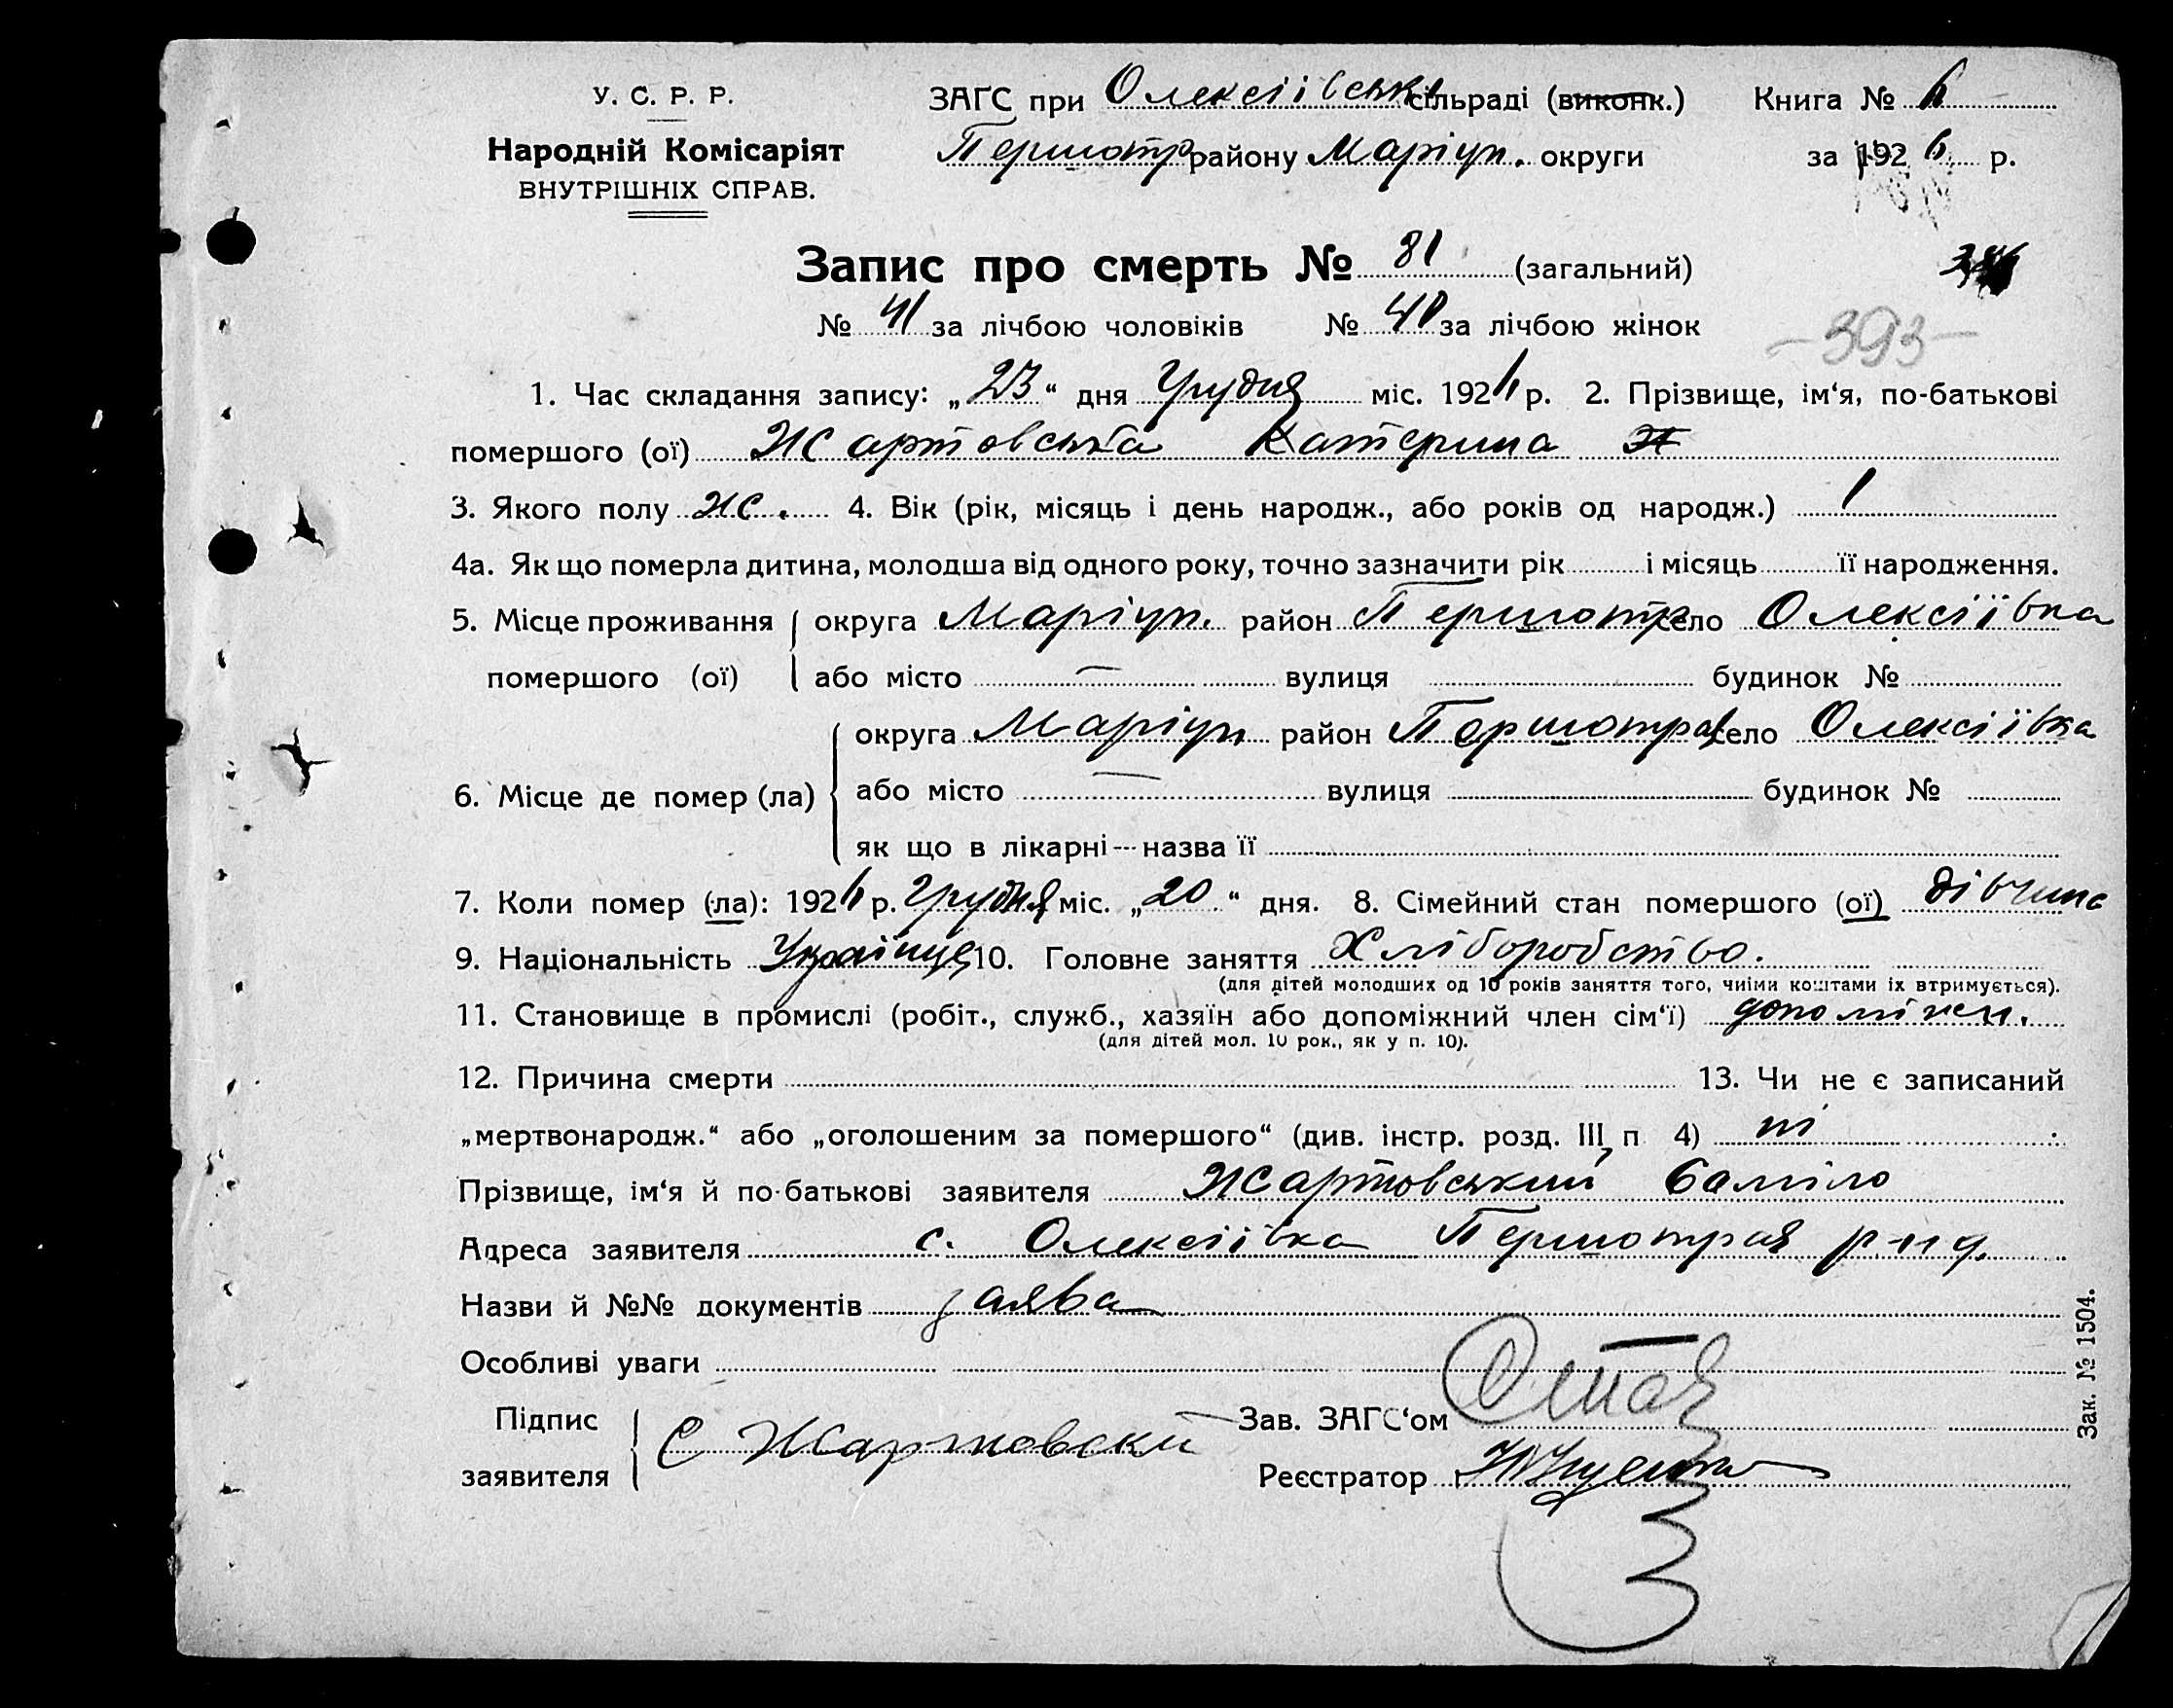 У. С. Р. Р.
Народній Комісаріят
ВНУТРІШНІХ СПРАВ.
ЗАГС при Олексіївські сільраді (виконк.) Книга № 6
Першотр району Маріуп. округи за 1926 р.
Запис про смерть № 81 (загальний)
№ 41 за лічбою чоловіків № 40 за лічбою жінок
-393-
1. Час складання запису: „23“ дня Грудня міс. 1926 р. 2. Прізвище, ім‘я, по-батькові
помершого (ої) Жартовська Катерина
3. Якого полу ж. 4. Вік (рік, місяць і день народж., або років од народж.) 1
4а. Як що померла дитина, молодша від одного року, точно зазначити рік і місяць її народження.
5. Місце проживання помершого (ої) округа Маріуп. район Першотр село Олексіївка
або місто — вулиця будинок №
6. Місце де помер (ла) округа Маріуп район Першотрав село Олексіївка
або місто — вулиця будинок №
як що в лікарні --- назва її
7. Коли помер (ла): 1926 р. Грудня міс. „20“ дня. 8. Сімейний стан помершого (ої) дівчина
9. Національність 10. Головне заняття Хліборобство.
(для дітей молодших од 10 років заняття того, чиіми коштами іх втримується).
11. Становище в промислі (робіт., служб., хазяїн або допоміжний член сім‘ї) допоміжн.
(для дітей мол. 10 рок., як у п. 10).
12. Причина смерти 13. Чи не є записаний
„мертвонародж.“ або „оголошеним за помершого“ (див. інстр. розд. III, п 4) ні
Прізвище, ім‘я й по-батькові заявителя Жартовський
Адреса заявителя с. Олексіївка Першотрав р-ну
Назви й №№ документів заява
Особливі уваги
Підпис заявителя С Жартовски
Зав. ЗАГС‘ом
Реєстратор
Зак. № 1504.